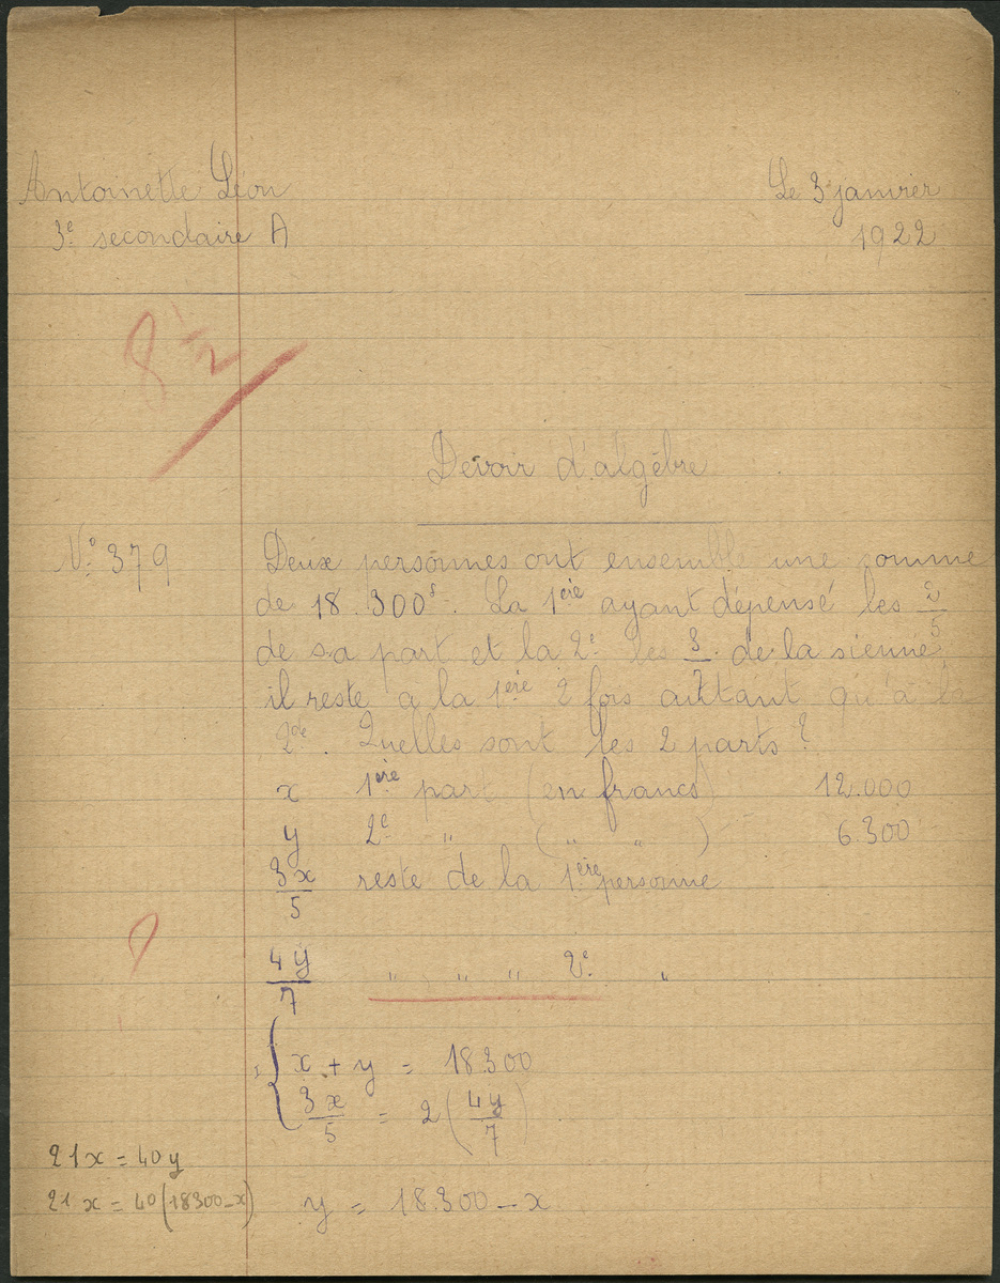 Antoinette Léon
Le 3 janvier
3e secondaire A
1922
8 1/2
Devoir d'algèbre
N° 379
Deux personnes ont ensemble une somme
de 18.300f. La 1ère ayant dépensé les 2/5
de sa part et la 2e les 3/7 de la sienne,
il reste a la 1ère 2 fois autant qu'à la
2de. Quelles sont les 2 parts ?
x 1ère part (en francs) 12.000
y 2e " ( " " ) 6.300
3x/5 reste de la 1ère personne
4y/7 " " " 2e "
{ x + y = 18.300
3x/5 = 2(4y/7)
21x = 40y
21x = 40(18300-x)
y = 18.300 - x